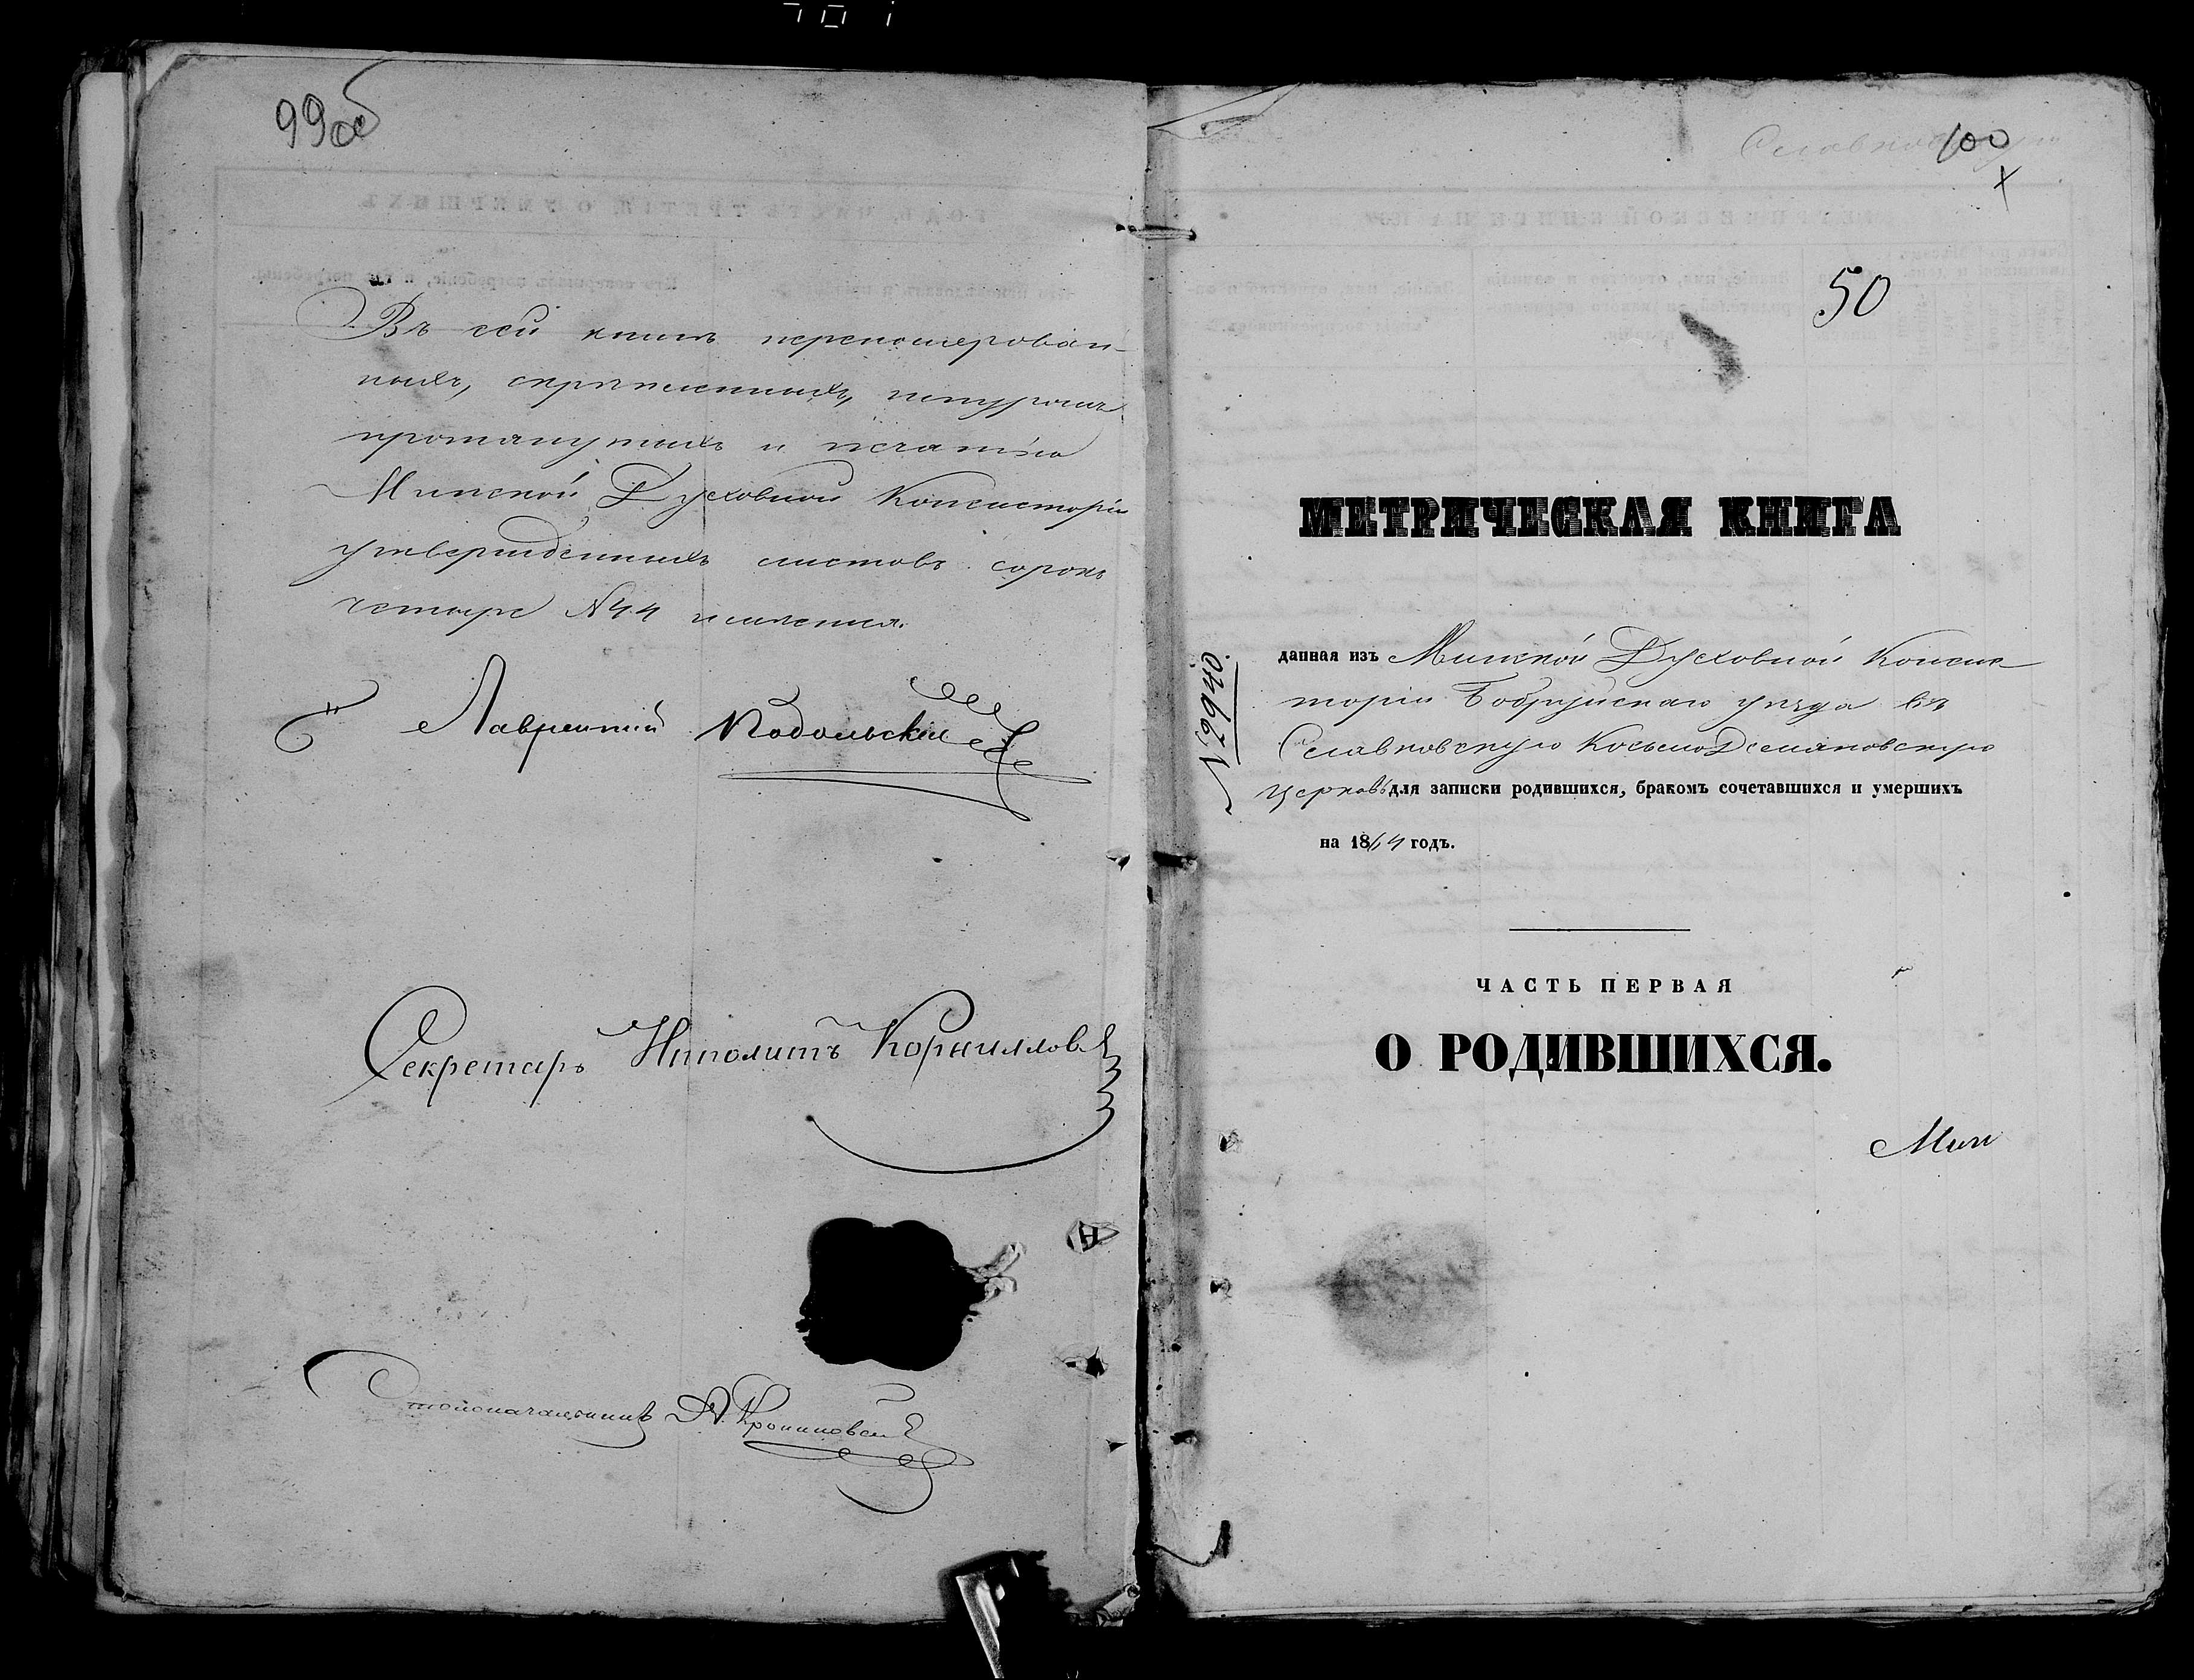 99об
Въ сей книгѣ перенумерован-
ныхъ, скрѣпленныхъ, шнуромъ
протянутыхъ и печатью
Минской Духовной Консисторіи
утвержденныхъ листовъ сорокъ
четыре №44 имѣется.
Лаврентій Подольскій
Секретарь Иполитъ Корнилловъ
Столоначальникъ
100
50
МЕТРИЧЕСКАЯ КНИГА
№ 7640
данная изъ Минской Духовной Консис
торіи Бобруйскаго уѣзда въ
Славковскую Косьмо Деміановскую
церковь для записки родившихся, бракомъ сочетавшихся и умершихъ
на 1864 годъ.
ЧАСТЬ ПЕРВАЯ
О РОДИВШИХСЯ.
Мин